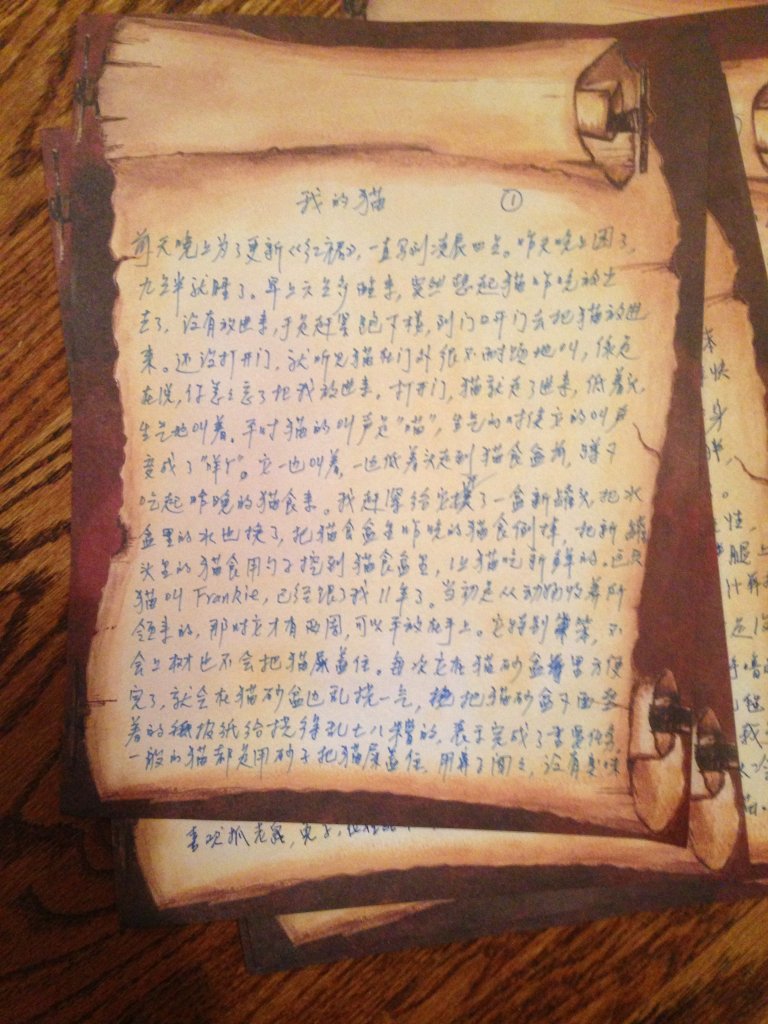 我的猫 ①
前天晚上为了更新《红裙》，一直写到凌晨四点。昨天晚上困了，
九点半就睡了。早上六点多醒来，突然想起猫昨晚放出
去了，没有放进来，于是赶紧跑下楼，到门口开门去把猫放进
来。还没打开门，就听见猫在门外很不耐烦地叫，像是
在说，你怎么忘了把我放进来。打开门，猫就走了进来，低着头，
生气地叫着。平时猫的叫声是“喵”，生气的时候它的叫声
变成了“咩”。它一边叫着，一边低着头走到猫食盆前，蹲下
吃起昨晚的猫食来。我赶紧给它换了一盒新罐头，把水
盆里的水也换了，把猫食盆里昨晚的猫食倒掉，把新罐
头里的猫食用勺子挖到猫食盆里，让猫吃新鲜的。这只
猫叫Frankie，已经跟了我11年了。当初是从动物收养所
领来的，那时它才有两周，可以平放在手上。它特别笨，不
会上树也不会把猫屎盖住。每次它在猫砂盆里方便
完了，就会在猫砂盆边乱挠一气，把猫砂盆下面垫
着的纸给挠得乱七八糟的，表示完成了重要任务。
一般的猫都是用砂子把猫屎盖住，用鼻子闻闻，没有臭味
喜欢抓老鼠，兔子，